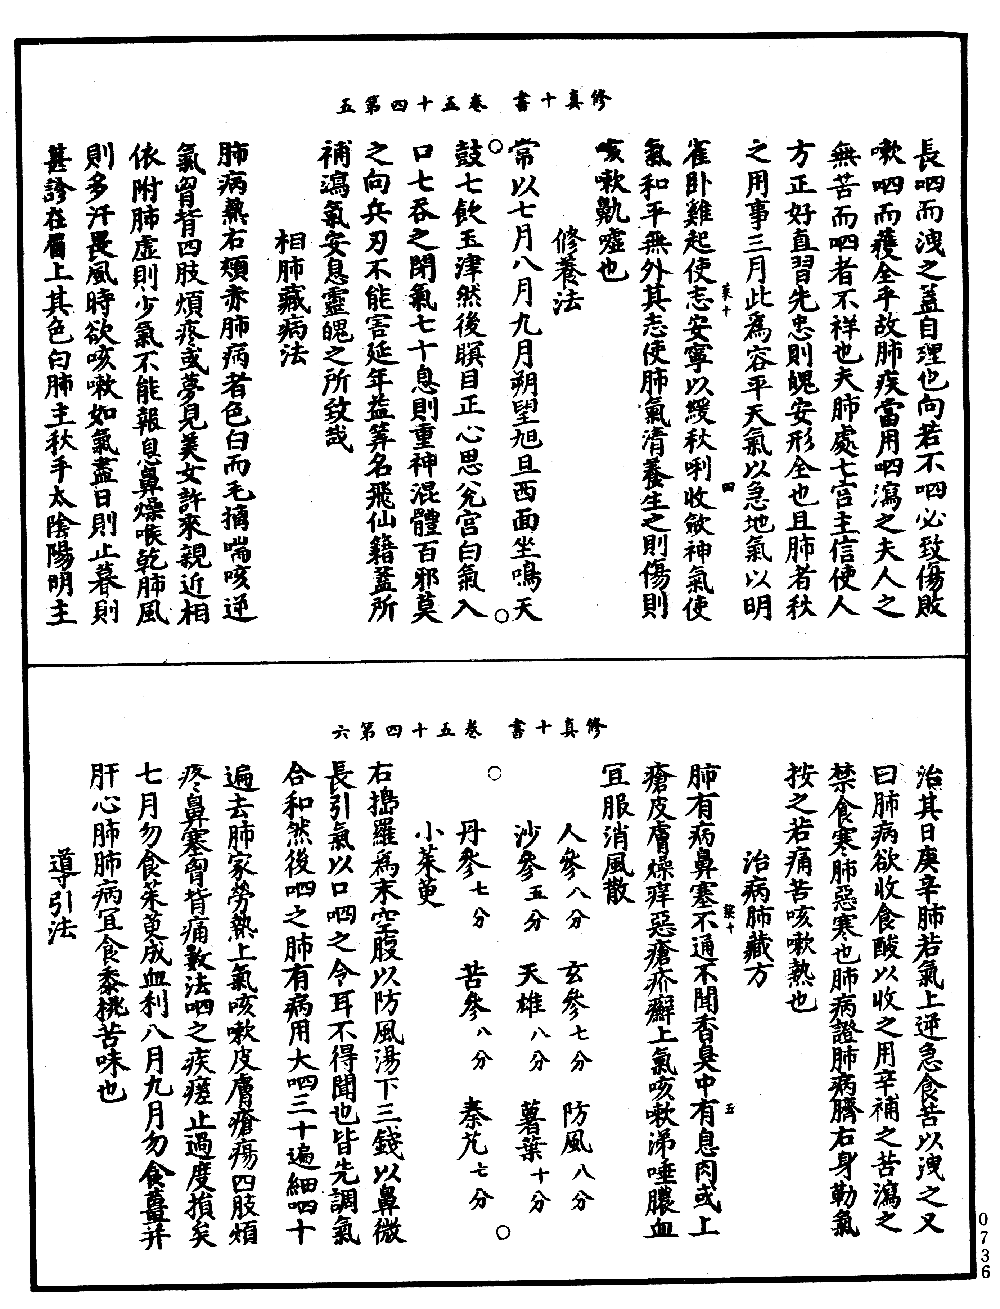 修真十書　卷五十四第五
長呬而洩之蓋自理也向若不呬必致傷敗
嗽呬而蕵全乎故肺疾當用呬瀉之夫人之
無苦而呬者不祥也夫肺處七宮主信使人
方正好直習先忠則魄安形全也且肺者秋
之用事三月此為容平天氣以急地氣以明
菜十　四
雀卧雞起使志安寧以緩秋唎收斂神氣使
氣和平無外其志使肺氣清養生之則傷則
咳嗽鼽嚏也
修養法
常以七月八月九月朔望旭旦西面坐鳴天
鼓七飲玉津然後瞑目正心思兊宮白氣入
口七吞之閉氣七十息則重神混體百邪莫
之向兵刃不能害延年益筭名飛仙籍蓋所
補瀉氣安息靈魄之所致哉
相肺藏病法
肺病熱右頰赤肺病者色白而毛槁喘咳逆
氣胷背四肢煩疼或夢見美女許來親近相
依附肺虛則少氣不能報息鼻燥喉乾肺風
則多汗畏風時欲咳嗽如氣盡日則止暮則
甚診在眉上其色白肺主秋手太陰陽明主
修真十書　卷五十四第六
治其日庚辛肺若氣上逆急食苦以洩之又
曰肺病欲收食酸以收之用辛補之苦瀉之
禁食寒肺惡寒也肺病證肺病臍右身勒氣
按之若痛苦咳嗽熱也
治病肺藏方
十　五
肺有病鼻塞不通不聞香臭中有息肉或上
瘡皮膚燥痒惡瘡疥癬上氣咳嗽涕唾膿血
冝服消風散
人參八分　玄參七分　防風八分
沙參五分　天雄八分　薯蕷十分
丹參七分　苦參八分　秦艽七分
小茱萸
右搗羅為末空腹以防風湯下三錢以鼻微
長引氣以口呬之令耳不得聞也皆先調氣
合和然後呬之肺有病用大呬三十遍細呬十
遍去肺家勞熱上氣咳嗽皮膚瘡瘍四肢煩
疼鼻塞胷背痛數法呬之疾瘥止過度損矣
七月勿食茱萸成血利八月九月勿食薑幷
肝心肺肺病冝食黍桃苦味也
導引法
0736